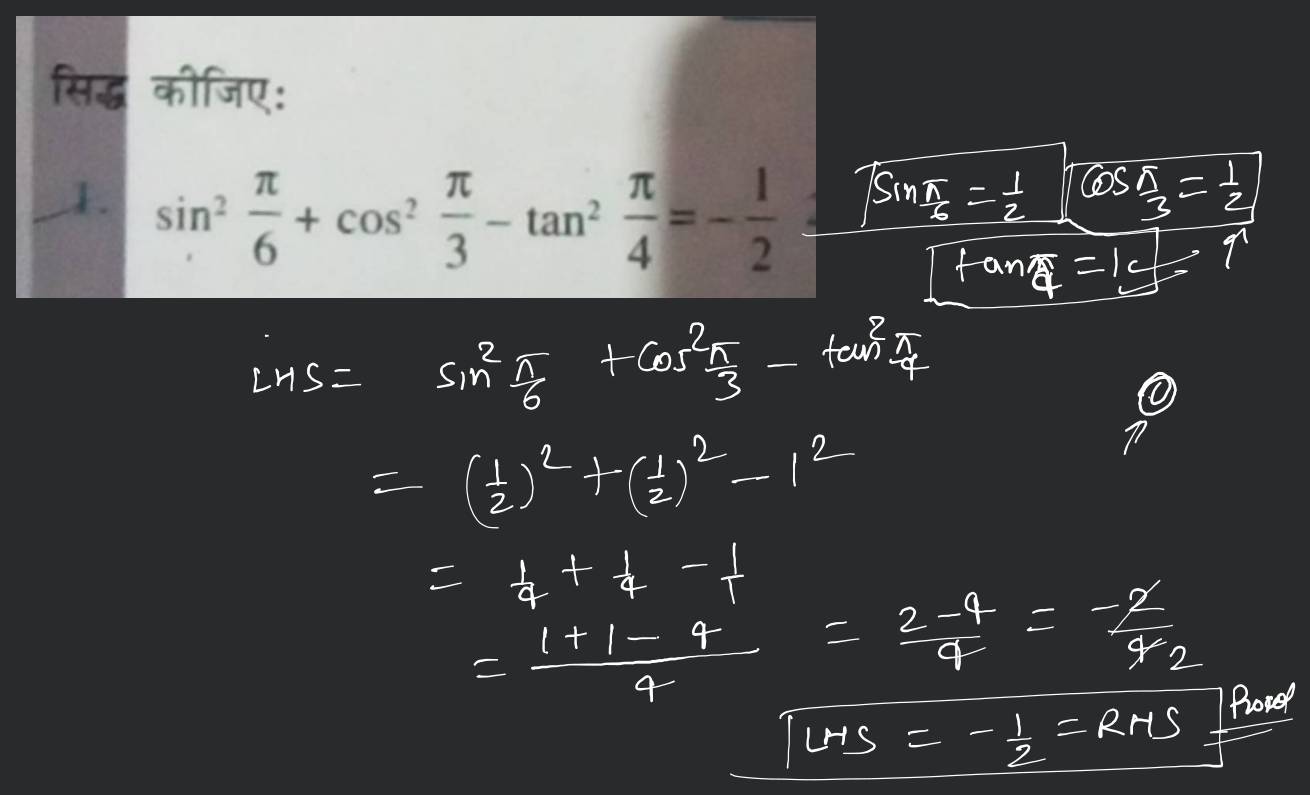 सिद्ध कीजिए:
1. sin² π/6 + cos² π/3 − tan² π/4 = −1/2
sin π/6 = 1/2
cos π/3 = 1/2
tan π/4 = 1
LHS = sin² π/6 + cos² π/3 − tan² π/4
= (1/2)² + (1/2)² − 1²
= 1/4 + 1/4 − 1/1
= (1+1−4)/4 = (2−4)/4 = −2/4 2
LHS = −1/2 = RHS Proved